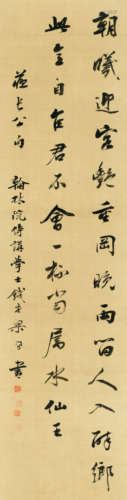 朝曦迎客艷重岡晚雨留人入醉鄉
此意自佳君不會一杯當屬水仙王
蘇長公句
翰林院侍講學士錢塘梁同書